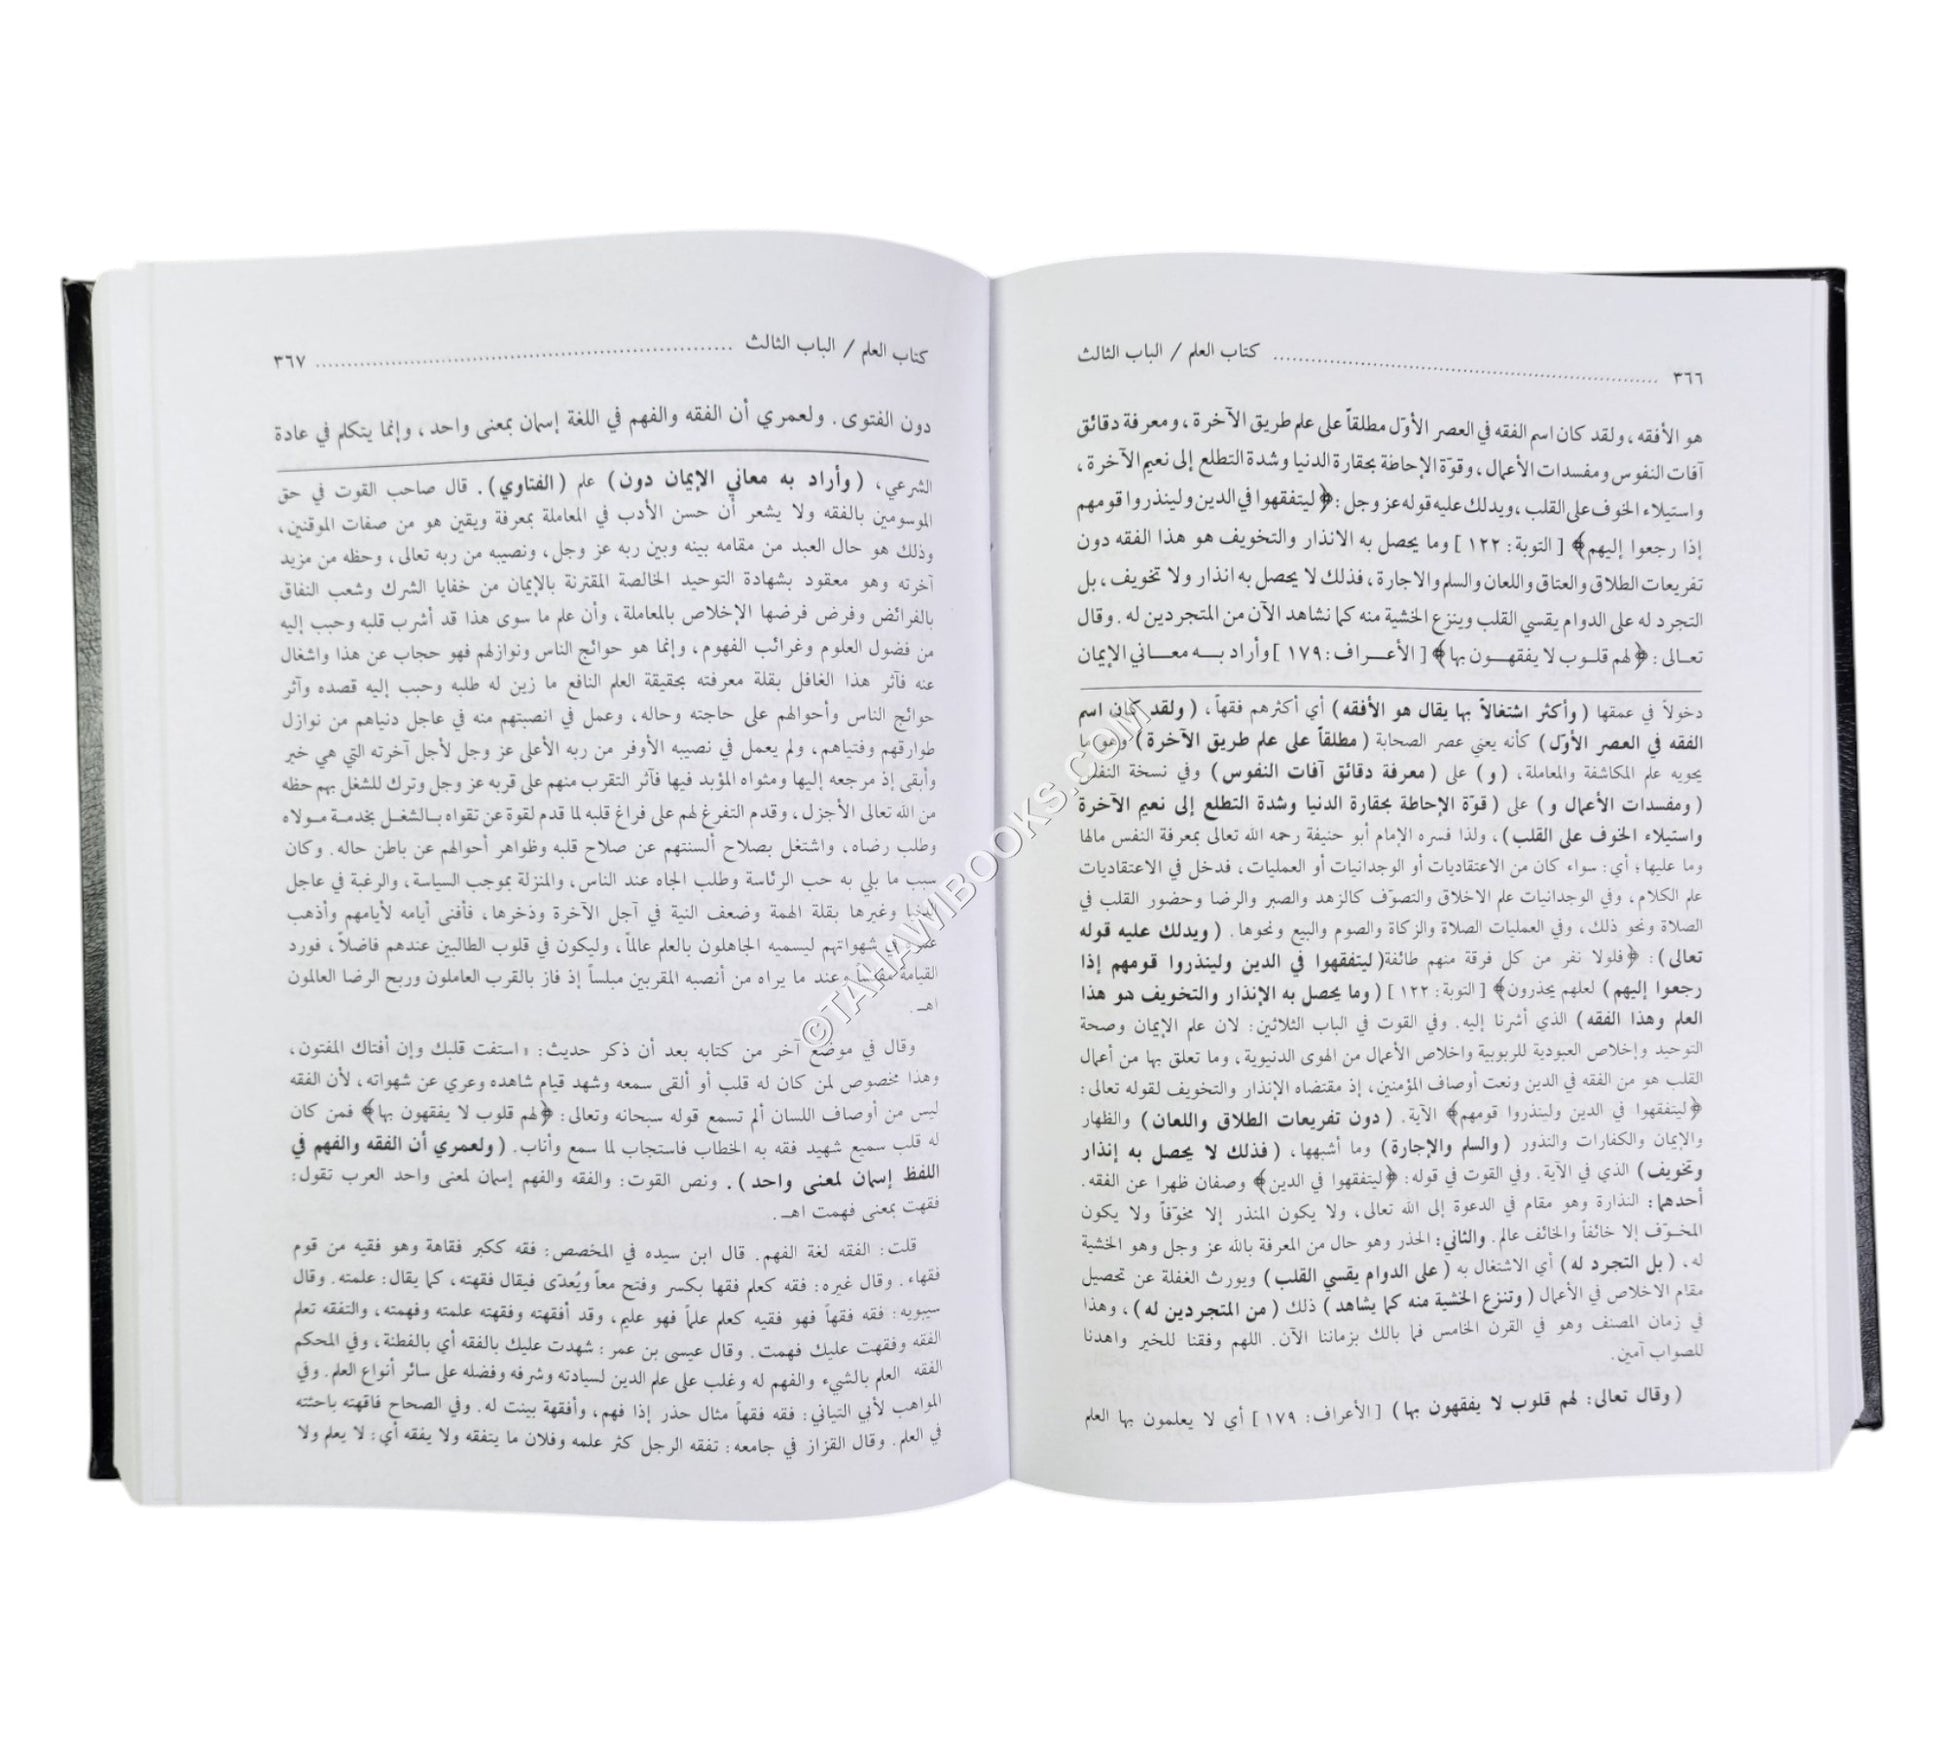 ٣٦٦ ........ كتاب العلم / الباب الثالث
هو الأفقه، ولقد كان اسم الفقه في العصر الأوّل مطلقاً على علم طريق الآخرة، ومعرفة دقائق
آفات النفوس ومفسدات الأعمال، وقوّة الإحاطة بحقارة الدنيا وشدة التطلع إلى نعيم الآخرة،
واستيلاء الخوف على القلب، ويدلك عليه قوله عز وجل: ﴿ليتفقهوا في الدين ولينذروا قومهم
إذا رجعوا إليهم﴾ [ التوبة: ١٢٢ ] وما يحصل به الانذار والتخويف هو هذا الفقه دون
تفريعات الطلاق والعتاق واللعان والسلم والاجارة، فذلك لا يحصل به انذار ولا تخويف، بل
التجرد له على الدوام يقسي القلب وينزع الخشية منه كما نشاهد الآن من المتجردين له. وقال
تعالى: ﴿لهم قلوب لا يفقهون بها﴾ [ الأعراف: ١٧٩ ] وأراد به معاني الإيمان
دخولاً في عمقها ( وأكثر اشتغالاً بها يقال هو الأفقه ) أي أكثرهم فقهاً، ( ولقد كان اسم
الفقه في العصر الأوّل ) كأنه يعني عصر الصحابة ( مطلقاً على علم طريق الآخرة ) وهو ما
يحويه علم المكاشفة والمعاملة، ( و ) على ( معرفة دقائق آفات النفوس ) وفي نسخة النفس
( ومفسدات الأعمال و ) على ( قوّة الإحاطة بحقارة الدنيا وشدة التطلع إلى نعيم الآخرة
واستيلاء الخوف على القلب )، ولذا فسره الإمام أبو حنيفة رحمه الله تعالى بمعرفة النفس مالها
وما عليها؛ أي: سواء كان من الاعتقاديات أو الوجدانيات أو العمليات، فدخل في الاعتقاديات
علم الكلام، وفي الوجدانيات علم الاخلاق والتصوّف كالزهد والصبر والرضا وحضور القلب في
الصلاة ونحو ذلك، وفي العمليات الصلاة والزكاة والصوم والبيع ونحوها. ( ويدلك عليه قوله
تعالى ): ﴿فلولا نفر من كل فرقة منهم طائفة( ليتفقهوا في الدين ولينذروا قومهم إذا
رجعوا إليهم ) لعلهم يحذرون﴾ [ التوبة: ١٢٢ ] ( وما يحصل به الإنذار والتخويف هو هذا
العلم وهذا الفقه ) الذي أشرنا إليه. وفي القوت في الباب الثلاثين: لان علم الإيمان وصحة
التوحيد وإخلاص العبودية للربوبية واخلاص الأعمال من الهوى الدنيوية، وما تعلق بها من أعمال
القلب هو من الفقه في الدين ونعت أوصاف المؤمنين، إذ مقتضاه الإنذار والتخويف لقوله تعالى:
﴿ليتفقهوا في الدين ولينذروا قومهم﴾ الآية. ( دون تفريعات الطلاق واللعان ) والظهار
والإيمان والكفارات والنذور ( والسلم والإجارة ) وما أشبهها، ( فذلك لا يحصل به إنذار
وتخويف ) الذي في الآية. وفي القوت في قوله: ﴿ليتفقهوا في الدين﴾ وصفان ظهرا عن الفقه.
أحدهما: النذارة وهو مقام في الدعوة إلى الله تعالى، ولا يكون المنذر إلا مخوّفاً ولا يكون
المخوّف إلا خائفاً والخائف عالم. والثاني: الحذر وهو حال من المعرفة بالله عز وجل وهو الخشية
له، ( بل التجرد له ) أي الاشتغال به ( على الدوام يقسي القلب ) ويورث الغفلة عن تحصيل
مقام الاخلاص في الأعمال ( وتنزع الخشية منه كما يشاهد ) ذلك ( من المتجردين له )، وهذا
في زمان المصنف وهو في القرن الخامس فما بالك بزماننا الآن. اللهم وفقنا للخير واهدنا
للصواب آمين.
( وقال تعالى: لهم قلوب لا يفقهون بها ) [ الأعراف: ١٧٩ ] أي لا يعلمون بها العلم
كتاب العلم / الباب الثالث ........ ٣٦٧
دون الفتوى. ولعمري أن الفقه والفهم في اللغة إسمان بمعنى واحد، وإنما يتكلم في عادة
الشرعي، ( وأراد به معاني الإيمان دون ) علم ( الفتاوي ). قال صاحب القوت في حق
الموسومين بالفقه ولا يشعر أن حسن الأدب في المعاملة بمعرفة ويقين هو من صفات الموقنين،
وذلك هو حال العبد من مقامه بينه وبين ربه عز وجل، ونصيبه من ربه تعالى، وحظه من مزيد
آخرته وهو معقود بشهادة التوحيد الخالصة المقترنة بالإيمان من خفايا الشرك وشعب النفاق
بالفرائض وفرض فرضها الإخلاص بالمعاملة، وأن علم ما سوى هذا قد أشرب قلبه وحبب إليه
من فضول العلوم وغرائب الفهوم، وإنما هو حوائج الناس ونوازلهم فهو حجاب عن هذا واشغال
عنه فآثر هذا الغافل بقلة معرفته بحقيقة العلم النافع ما زين له طلبه وحبب إليه قصده وآثر
حوائج الناس وأحوالهم على حاجته وحاله، وعمل في انصبتهم منه في عاجل دنياهم من نوازل
طوارقهم وفتياهم، ولم يعمل في نصيبه الأوفر من ربه الأعلى عز وجل لأجل آخرته التي هي خير
وأبقى إذ مرجعه إليها ومثواه المؤبد فيها فآثر التقرب منهم على قربه عز وجل وترك للشغل بهم حظه
من الله تعالى الأجزل، وقدم التفرغ لهم على فراغ قلبه لما قدم لقوة عن تقواه بالشغل بخدمة مولاه
وطلب رضاه، واشتغل بصلاح ألسنتهم عن صلاح قلبه وظواهر أحوالهم عن باطن حاله. وكان
سبب ما بلي به حب الرئاسة وطلب الجاه عند الناس، والمنزلة بموجب السياسة، والرغبة في عاجل
الدنيا وغيرها بقلة الهمة وضعف النية في آجل الآخرة وذخرها، فأفنى أيامه لأيامهم وأذهب
عمره في شهواتهم ليسميه الجاهلون بالعلم عالماً، وليكون في قلوب الطالبين عندهم فاضلاً، فورد
القيامة مفلساً وعند ما يراه من أنصبه المقربين مبلساً إذ فاز بالقرب العاملون وربح الرضا العالمون
اهـ.
وقال في موضع آخر من كتابه بعد أن ذكر حديث: «استفت قلبك وإن أفتاك المفتون،
وهذا مخصوص لمن كان له قلب أو ألقى سمعه وشهد قيام شاهده وعري عن شهواته، لأن الفقه
ليس من أوصاف اللسان ألم تسمع قوله سبحانه وتعالى: ﴿لهم قلوب لا يفقهون بها﴾ فمن كان
له قلب سميع شهيد فقه به الخطاب فاستجاب لما سمع وأناب. ( ولعمري أن الفقه والفهم في
اللفظ إسمان لمعنى واحد ). ونص القوت: والفقه والفهم إسمان لمعنى واحد العرب تقول:
فقهت بمعنى فهمت اهـ.
قلت: الفقه لغة الفهم. قال ابن سيده في المخصص: فقه ككبر فقاهة وهو فقيه من قوم
فقهاء. وقال غيره: فقه كعلم فقها بكسر وفتح معاً ويُعدّى فيقال فقهته، كما يقال: علمته. وقال
سيبويه: فقه فقهاً فهو فقيه كعلم علماً فهو عليم، وقد أفقهته وفقهته علمته وفهمته، والتفقه تعلم
الفقه وفقهت عليك فهمت. وقال عيسى بن عمر: شهدت عليك بالفقه أي بالفطنة، وفي المحكم
الفقه العلم بالشيء والفهم له وغلب على علم الدين لسيادته وشرفه وفضله على سائر أنواع العلم. وفي
المواهب لأبي التياني: فقه فقهاً مثال حذر إذا فهم، وأفقهة بينت له. وفي الصحاح فاقهته باحثته
في العلم. وقال القزاز في جامعه: تفقه الرجل كثر علمه وفلان ما يتفقه ولا يفقه أي: لا يعلم ولا
©TAHAWIBOOKS.COM